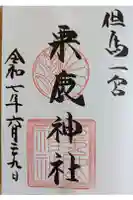 但馬一宮
粟鹿神社
令和七年六月二十九日